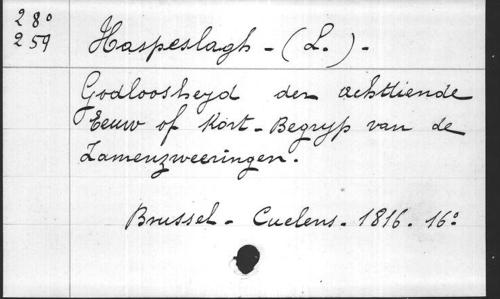 28°
259
Haspeslagh - (L.) -
Godloosheyd der achttiende
Eeuw of Kort-Begryp van de
Zamenzweeringen.
Brussel - Cuelens. 1816. 16°